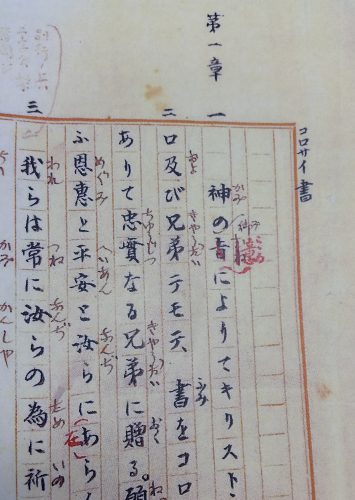 コロサイ書
第一章
一
かみ 御 み こころ
神の旨によりてキリスト
およ きやうだい ふみ
二 ロ及び兄弟テモテ、書をコロ
ちゆうじつ きやうだい おく ねが
ありて忠實なる兄弟に贈る。願
めぐみ へいあん なんぢ
ふ恩惠と平安と汝らに(あら
在
われ つね なんぢ ため いの
三 我らは常に汝らの為に祈
かみ かんしや